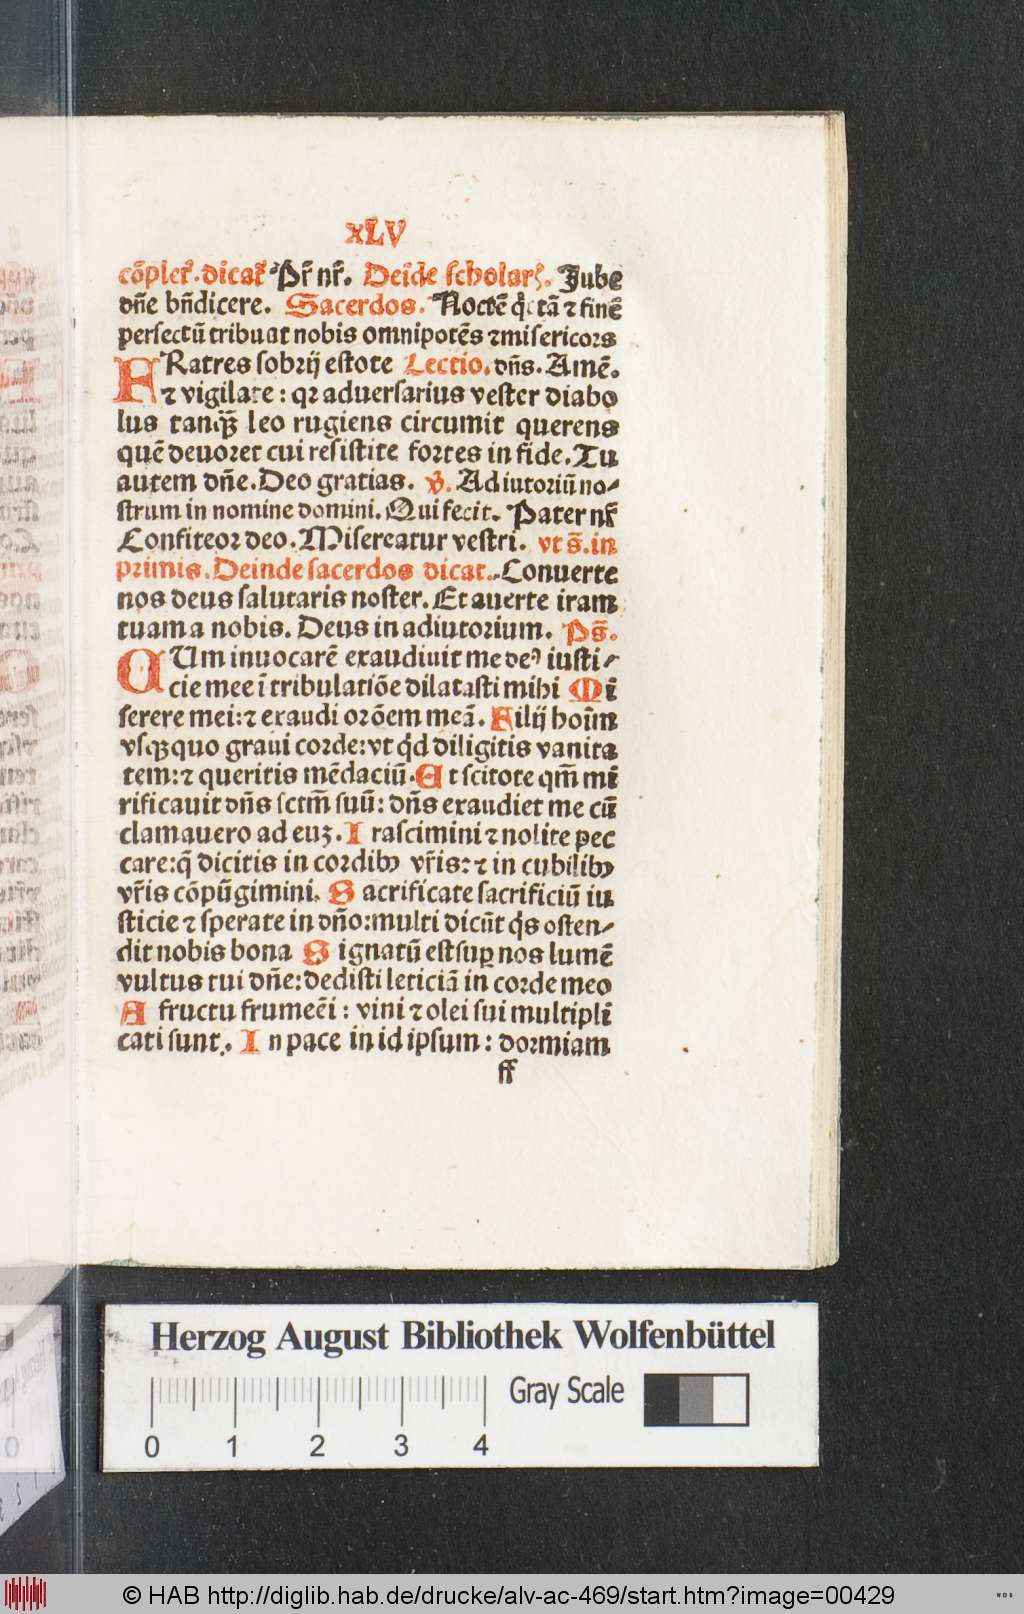 xLV
cōpletꝰ. dicatꝰ Pr̄ nr̄. Deīde scholarꝭ. Jube
dn̄e bn̄dicere. Sacerdos. Noctē q̇etā ⁊ finē
perfectū tribuat nobis omnipotēs ⁊misericors
FRatres sobrij estote Lectio. dn̄s. Amē.
⁊ vigilate: qꝛ aduersarius vester diabo
lus tanqꝫ leo rugiens circumit querens
quē deuoret cui resistite fortes in fide. Tu
autem dn̄e. Deo gratias. ℣. Adiutoriū no⸗
strum in nomine domini. Qui fecit. Pater nr̄
Confiteor deo. Misereatur vestri. vt s̄. in
primis. Deinde sacerdos dicat. Conuerte
nos deus salutaris noster. Et auerte iram
tuam a nobis. Deus in adiutorium. Ps̄.
CUm inuocarē exaudiuit me deꝰ iusti⸗
cie mee ī tribulatiōe dilatasti mihi Mi
serere mei: ⁊ exaudi orōem meā. Filij hoīm
vsqꝫquo graui corde: vt qd̓ diligitis vanita
tem: ⁊ queritis mēdaciū. Et scitote qm̄ mi
rificauit dn̄s sctm̄ suū: dn̄s exaudiet me cū
clamauero ad euꝫ. Irascimini ⁊ nolite pec
care: q̄ dicitis in cordibꝰ vr̄is: ⁊ in cubilibꝰ
vr̄is cōpūgimini. Sacrificate sacrificiū iu
sticie ⁊ sperate in dn̄o: multi dicūt qs̓ osten⸗
dit nobis bona Signatū est suꝑ nos lumē
vultus tui dn̄e: dedisti leticiā in corde meo
A fructu frumēti: vini ⁊ olei sui multipli
cati sunt. In pace in idipsum: dormiam
ff
Herzog August Bibliothek Wolfenbüttel
Gray Scale
0 1 2 3 4
© HAB http://diglib.hab.de/drucke/alv-ac-469/start.htm?image=00429